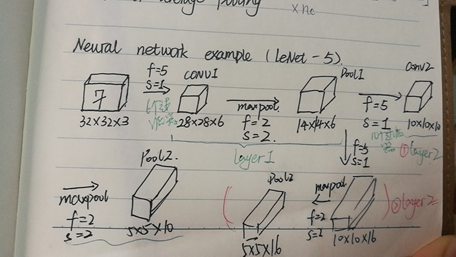 average pooling
× nc
Neural network example (LeNet-5).
7
32×32×3
f=5
s=1
6
conv1
28×28×6
maxpool
f=2
s=2.
Pool1
14×14×6
f=5
s=1
conv2
10×10×10
layer1
①layer2
f=5
s=1
maxpool
f=2
s=2
Pool2.
5×5×10
Pool2
5×5×16
maxpool
f=2
s=2
10×10×16
②layer2